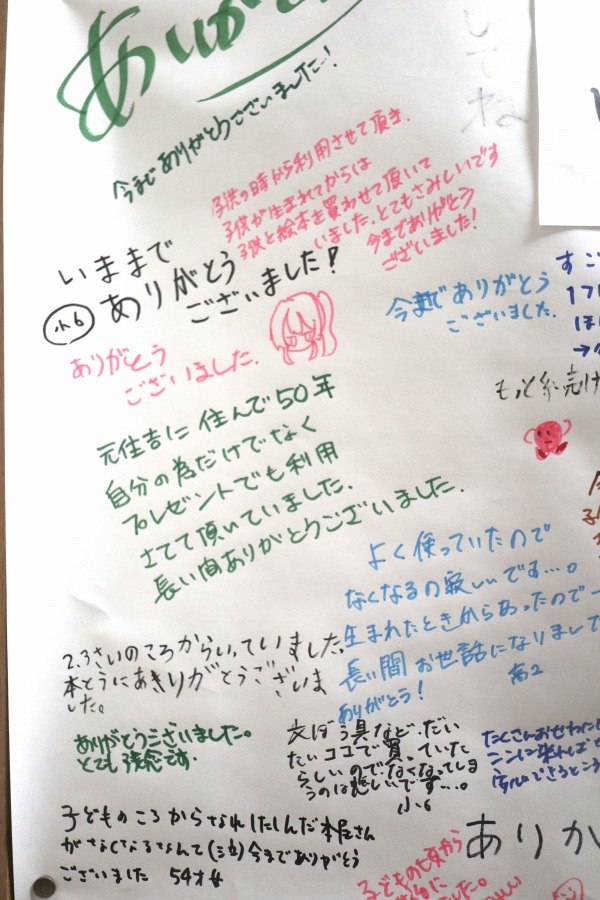 ありがと
今までありがとうございました…!
してね
子供の時から利用させて頂き、
子供が生まれてからは
子供と絵本を買わせて頂いて
いました。とてもさみしいです
今までありがとう
ございました!
いままで
小6 ありがとう
ございました!
今までありがとう
ございました。
すご
ありがとう
ございました。
もっと糸売け
元住吉に住んで50年
自分の為だけでなく
プレゼントでも利用
さてて頂いていました。
長い間ありがとうございました。
よく使っていたので
なくなるの寂しいです…。
生まれたときからあったので
長い間お世話になりまして
ありがとう!
高2
2、3さいのころからいっていました。
本とうにあきりがとうございま
した。
ありがとうございました。
とても残念です。
文ぼう具など、だい
たいココで買っていた
らしいのでなくなってしま
うのは悲しいです…。
小6
たくさんおせわに
子どものころからなれしたしんだ本屋さん
がなくなるなんて(泣)今までありがとう
ございました 54才女
ありが
子どもの頃から